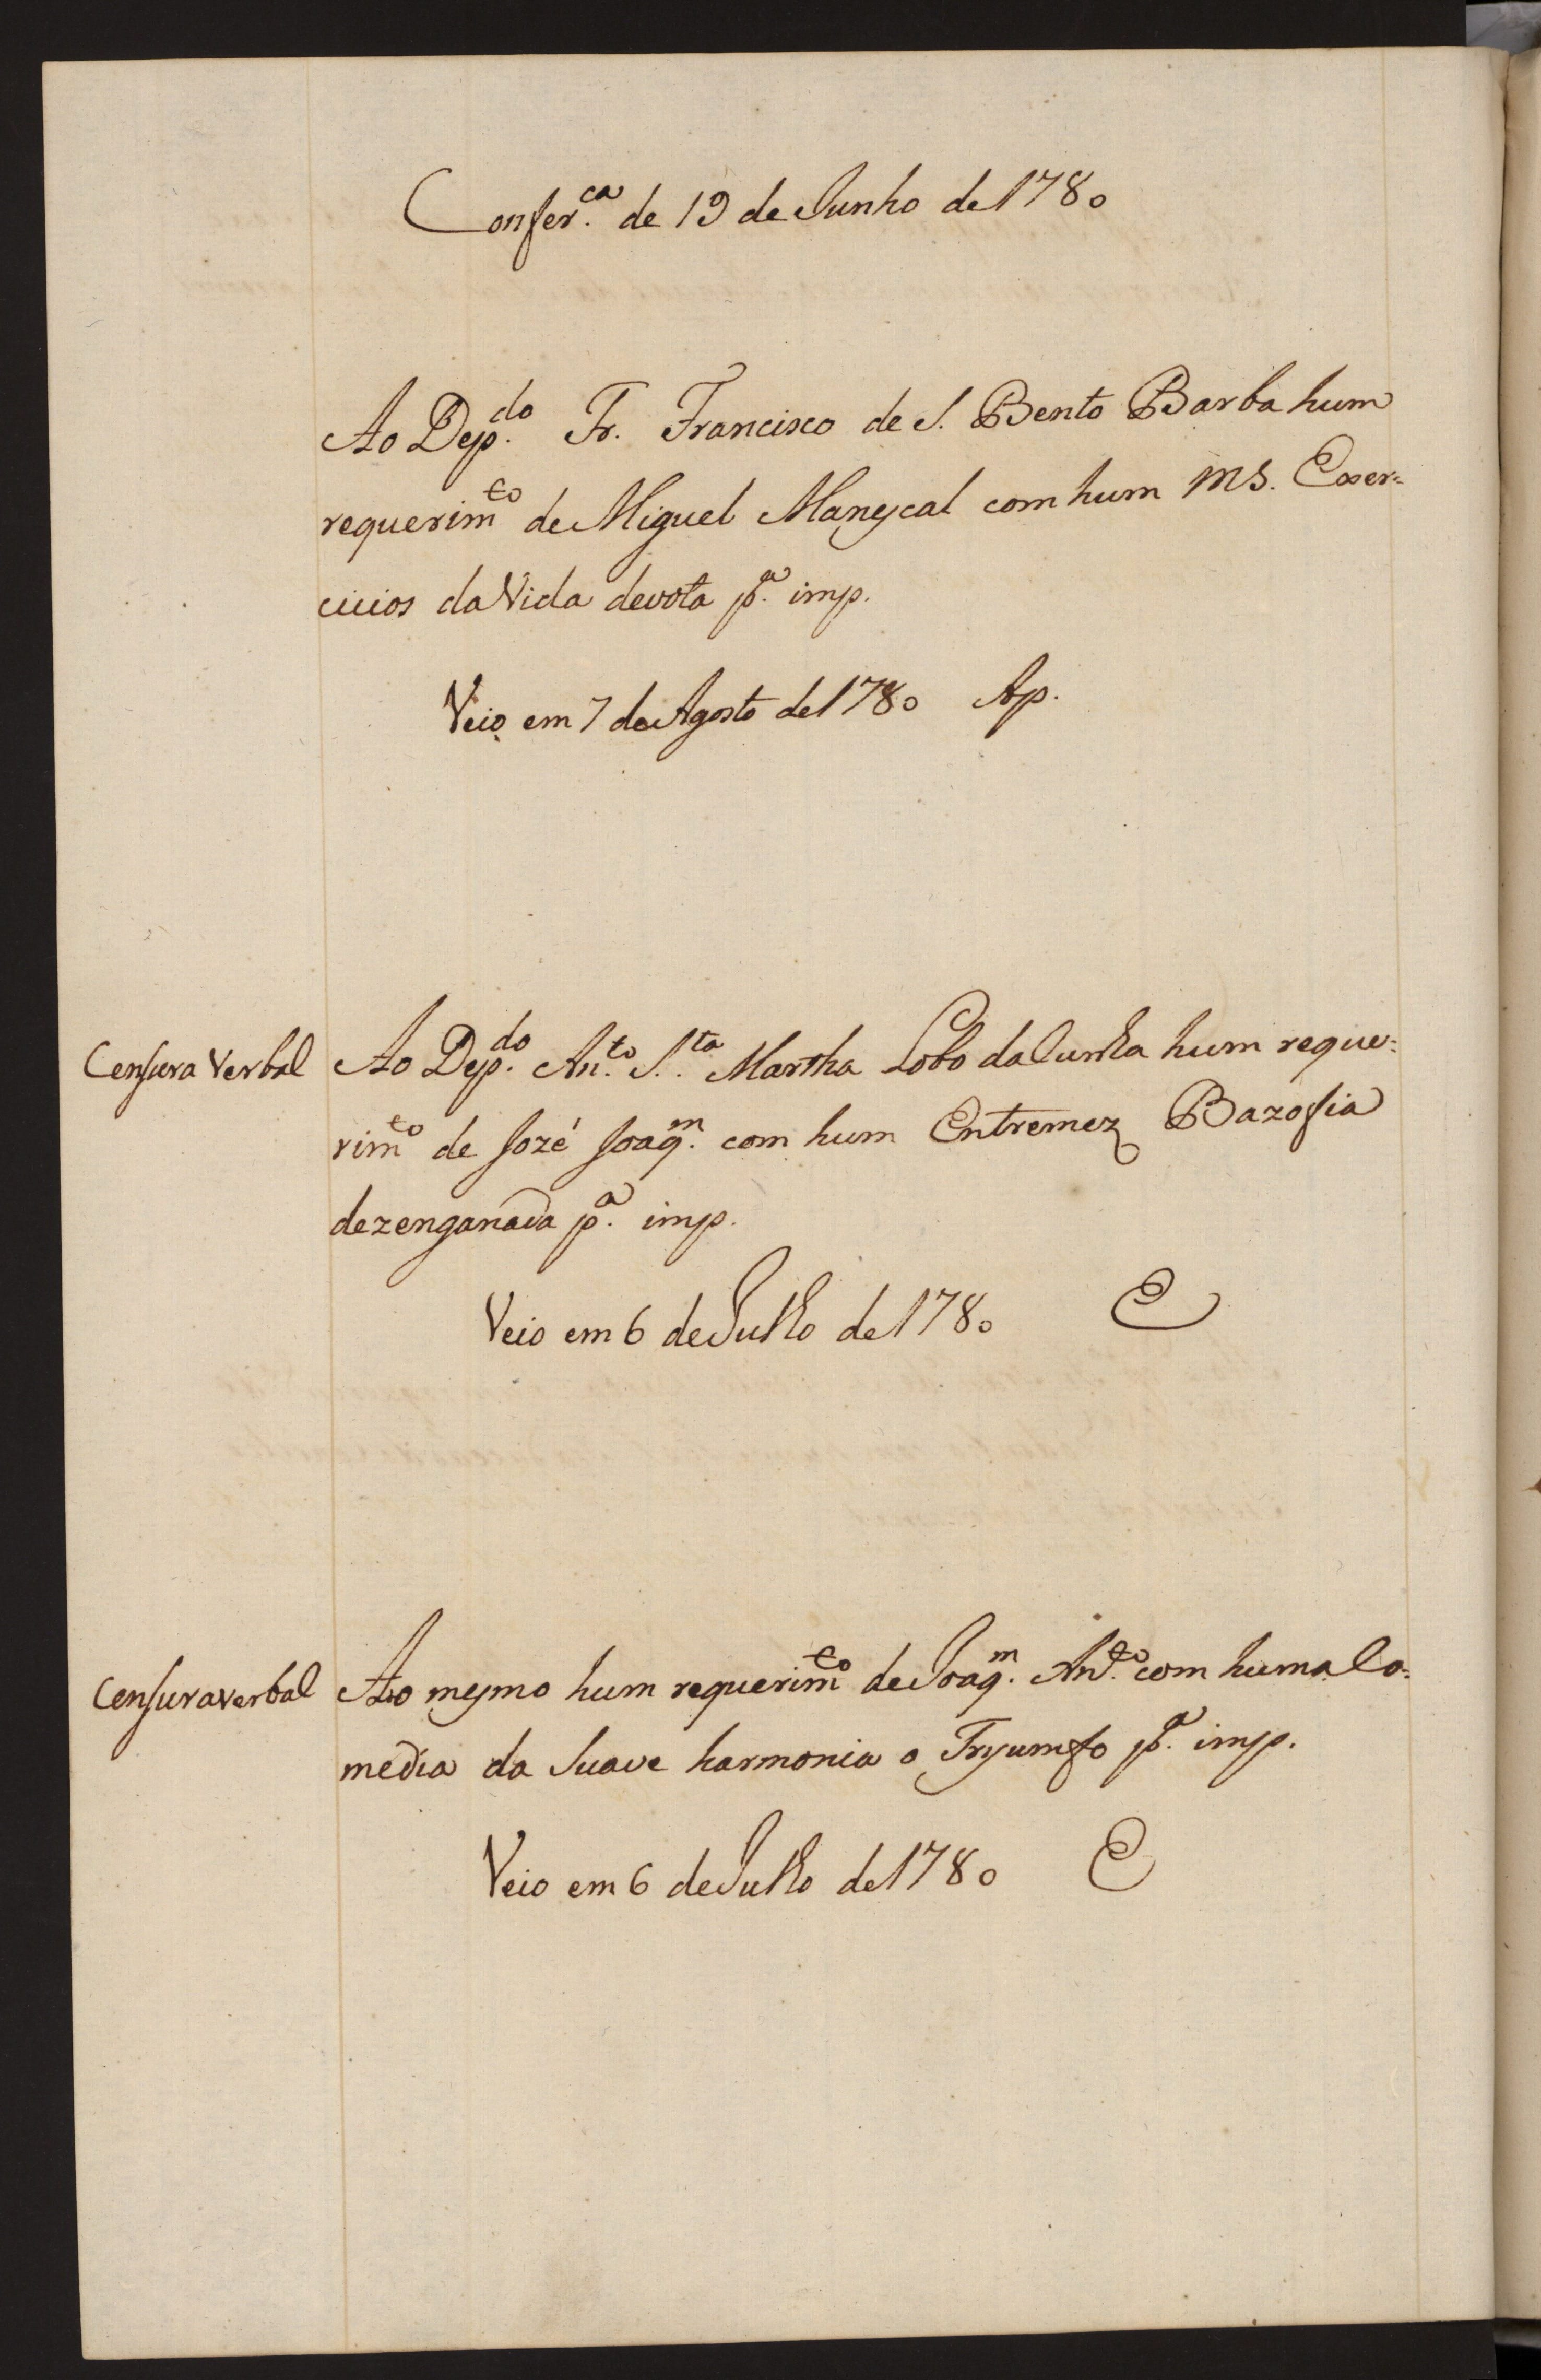 Confer.ca de 19 de Junho de 1780
Ao Dep.do Fr. Francisco de S. Bento Barba hum
requerim.to de Miguel Manescal com hum MS. Exer-
cicios da Vida devota p.a imp.
Veio em 7 de Agosto de 1780 Ap.
Censura Verbal
Ao Dep.do An.to S.ta Martha Lobo da Cunha hum reque-
rim.to de Jozé Joaq.m com hum Entremez Bazofia
dezenganada p.a imp.
Veio em 6 de Julho de 1780 E
Censura verbal
Ao mesmo hum requerim.to de Joaq.m An.to com huma Co-
media da Suave harmonia o Tryumfo p.a imp.
Veio em 6 de Julho de 1780 E